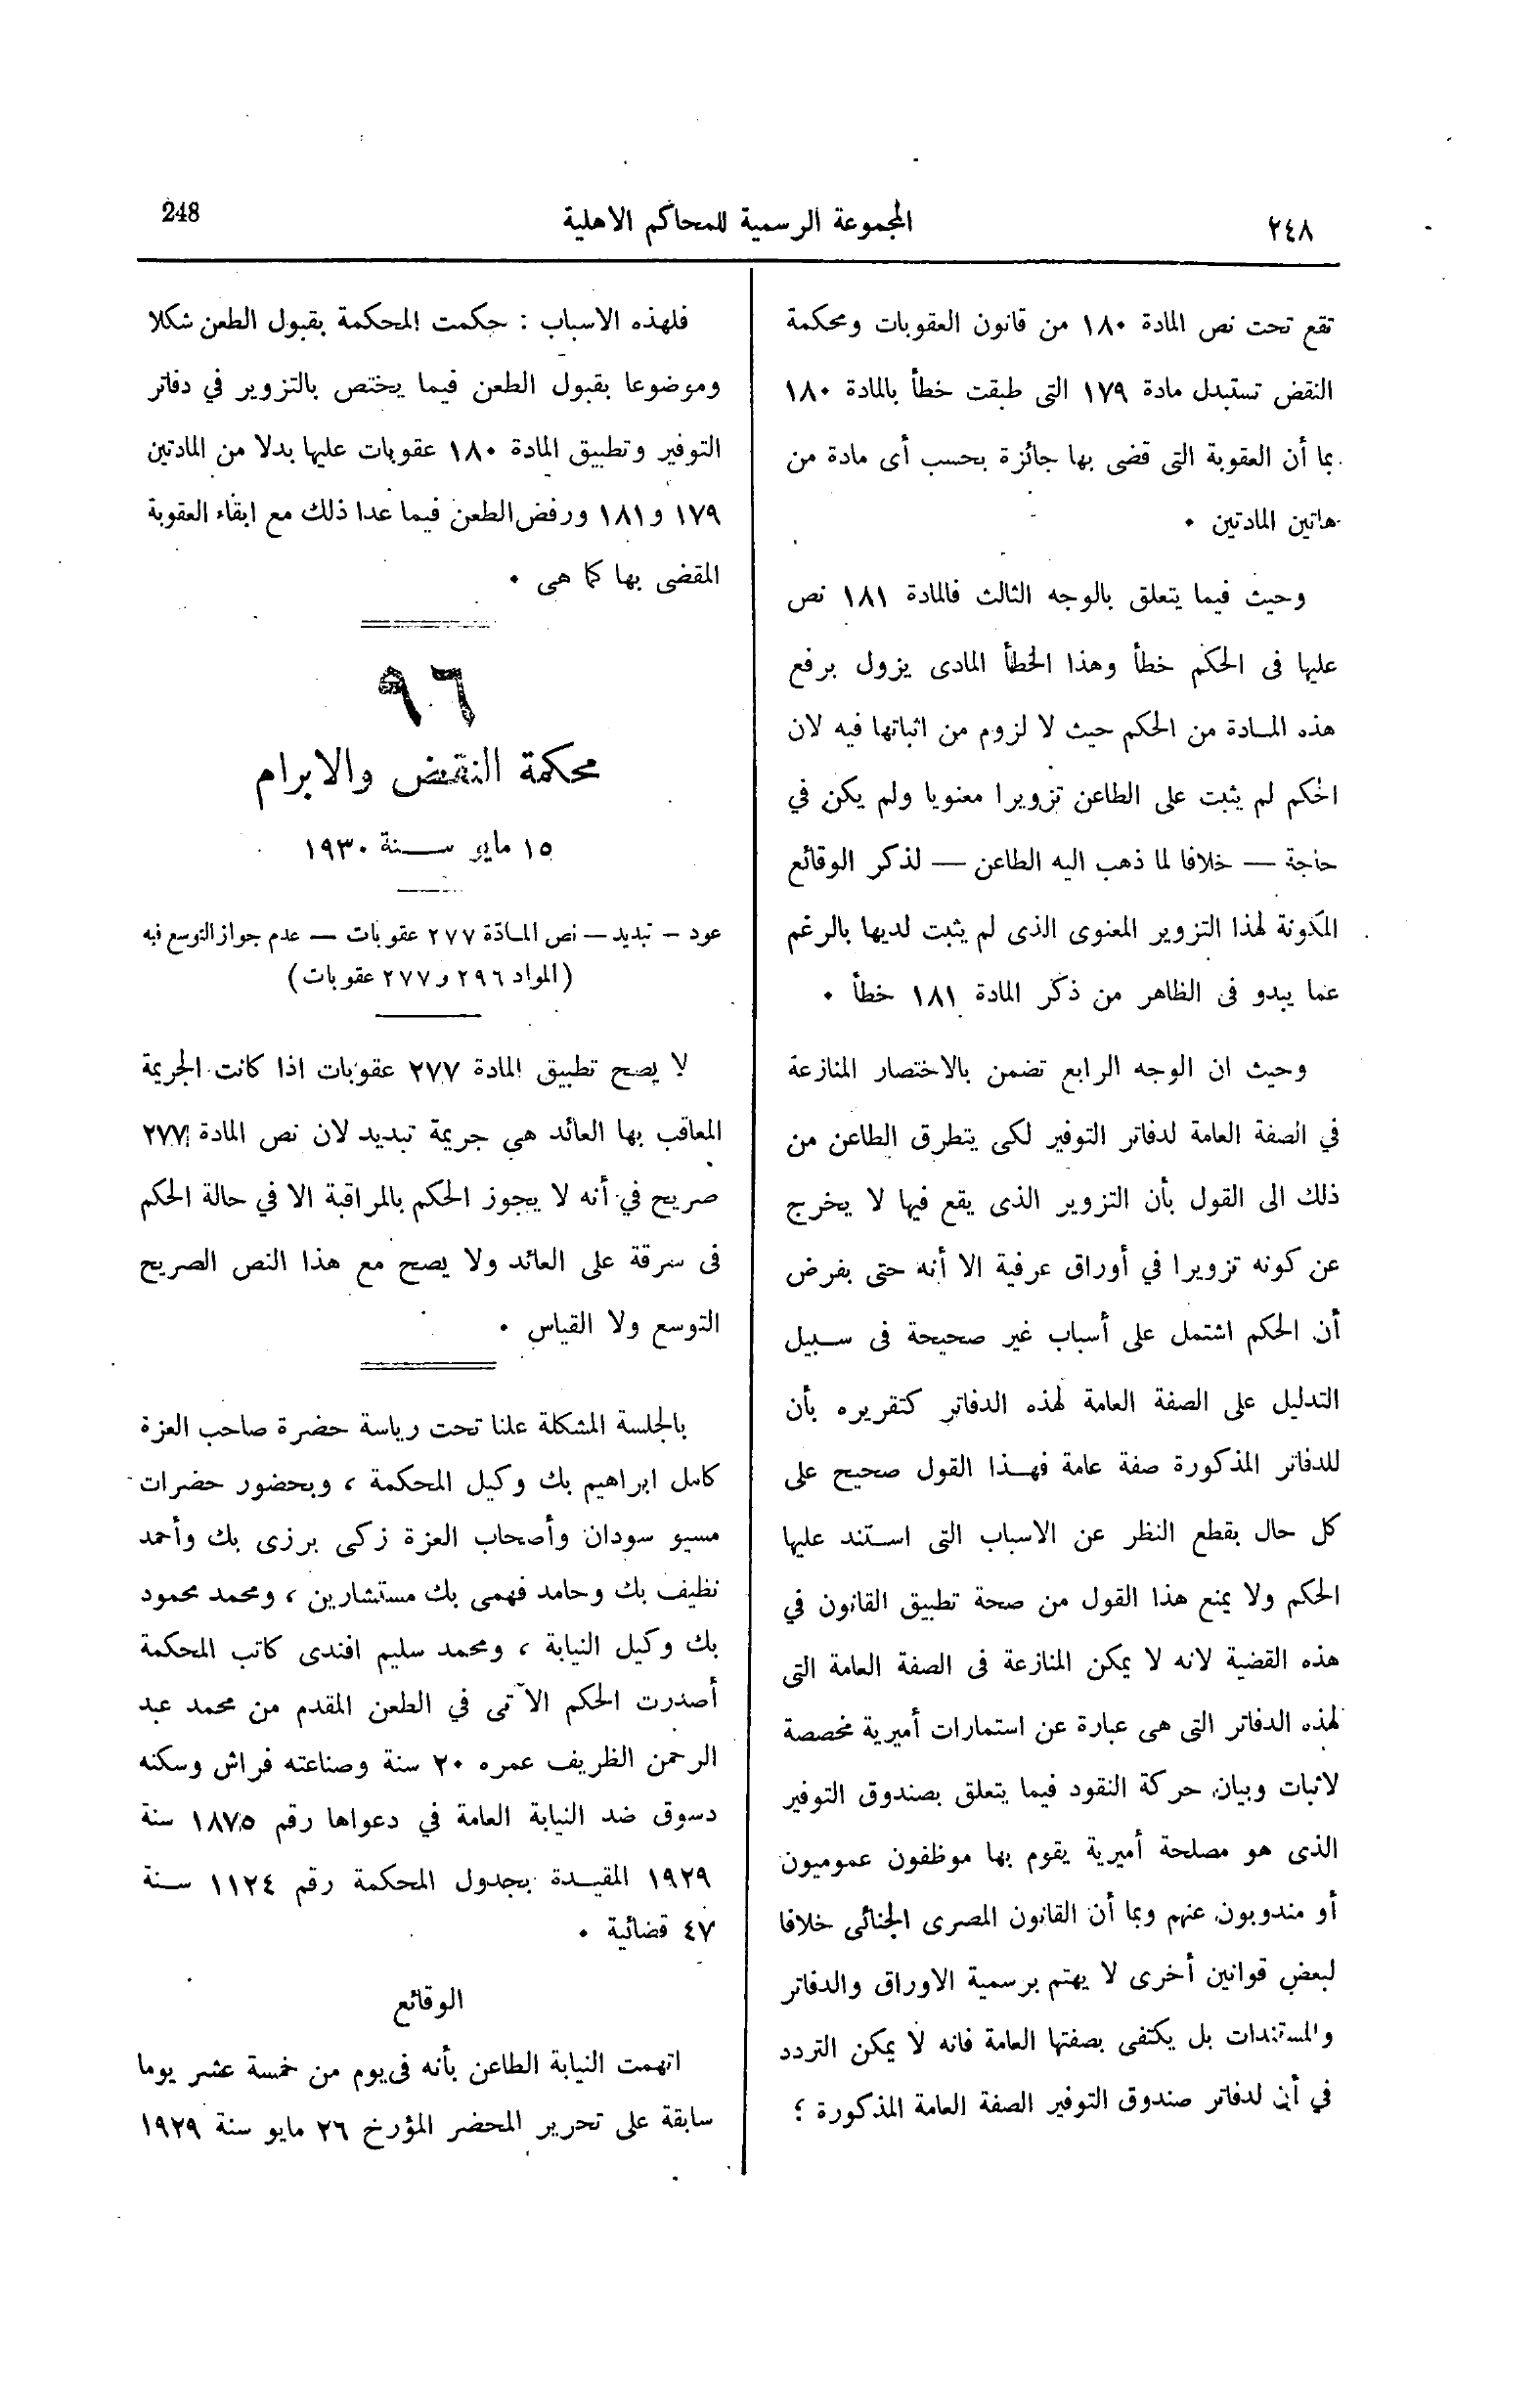 ٢٤٨
المجموعة الرسمية للمحاكم الاهلية
248
تقع تحت نص المادة ١٨٠ من قانون العقوبات ومحكمة
النقض تستبدل مادة ١٧٩ التى طبقت خطأ بالمادة ١٨٠
بما أن العقوبة التى قضى بها جائزة بحسب أى مادة من
هاتين المادتين .
وحيث فيما يتعلق بالوجه الثالث فالمادة ١٨١ نص
عليها فى الحكم خطأ وهذا الخطأ المادى يزول برفع
هذه المادة من الحكم حيث لا لزوم من اثباتها فيه لان
الحكم لم يثبت على الطاعن تزويرا معنويا ولم يكن في
حاجة — خلافا لما ذهب اليه الطاعن — لذكر الوقائع
المكونة لهذا التزوير المعنوى الذى لم يثبت لديها بالرغم
عما يبدو فى الظاهر من ذكر المادة ١٨١ خطأ .
وحيث ان الوجه الرابع تضمن بالاختصار المنازعة
في الصفة العامة لدفاتر التوفير لكى يتطرق الطاعن من
ذلك الى القول بأن التزوير الذى يقع فيها لا يخرج
عن كونه تزويرا في أوراق عرفية الا أنه حتى بفرض
أن الحكم اشتمل على أسباب غير صحيحة فى سبيل
التدليل على الصفة العامة لهذه الدفاتر كتقريره بأن
للدفاتر المذكورة صفة عامة فهذا القول صحيح على
كل حال بقطع النظر عن الاسباب التى استند عليها
الحكم ولا يمنع هذا القول من صحة تطبيق القانون في
هذه القضية لانه لا يمكن المنازعة فى الصفة العامة التى
لهذه الدفاتر التى هى عبارة عن استمارات أميرية مخصصة
لاثبات وبيان حركة النقود فيما يتعلق بصندوق التوفير
الذى هو مصلحة أميرية يقوم بها موظفون عموميون
أو مندوبون عنهم وبما أن القانون المصرى الجنائى خلافا
لبعض قوانين أخرى لا يهتم برسمية الاوراق والدفاتر
والمستندات بل يكتفى بصفتها العامة فانه لا يمكن التردد
في أن لدفاتر صندوق التوفير الصفة العامة المذكورة ؛
فلهذه الاسباب : حكمت المحكمة بقبول الطعن شكلا
وموضوعا بقبول الطعن فيما يختص بالتزوير في دفاتر
التوفير وتطبيق المادة ١٨٠ عقوبات عليها بدلا من المادتين
١٧٩ و١٨١ ورفض الطعن فيما عدا ذلك مع ابقاء العقوبة
المقضى بها كما هى .
٩٦
محكمة النقض والابرام
١٥ مايو سنة ١٩٣٠
عود — تبديد — نص المادة ٢٧٧ عقوبات — عدم جواز التوسع فيه
(المواد ٢٩٦ و٢٧٧ عقوبات)
لا يصح تطبيق المادة ٢٧٧ عقوبات اذا كانت الجريمة
المعاقب بها العائد هي جريمة تبديد لان نص المادة ٢٧٧
صريح في أنه لا يجوز الحكم بالمراقبة الا في حالة الحكم
فى سرقة على العائد ولا يصح مع هذا النص الصريح
التوسع ولا القياس .
بالجلسة المشكلة علنا تحت رياسة حضرة صاحب العزة
كامل ابراهيم بك وكيل المحكمة ، وبحضور حضرات
مسيو سودان وأصحاب العزة زكى برزى بك وأحمد
نظيف بك وحامد فهمى بك مستشارين ، ومحمد محمود
بك وكيل النيابة ، ومحمد سليم افندى كاتب المحكمة
أصدرت الحكم الآتى في الطعن المقدم من محمد عبد
الرحمن الظريف عمره ٢٠ سنة وصناعته فراش وسكنه
دسوق ضد النيابة العامة في دعواها رقم ١٨٧٥ سنة
١٩٢٩ المقيدة بجدول المحكمة رقم ١١٢٤ سنة
٤٧ قضائية .
الوقائع
اتهمت النيابة الطاعن بأنه فى يوم من خمسة عشر يوما
سابقة على تحرير المحضر المؤرخ ٢٦ مايو سنة ١٩٢٩